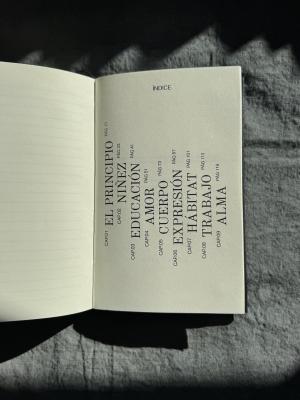 ÍNDICE
CAP.01 EL PRINCIPIO PÁG. 11
CAP.02 NIÑEZ PÁG.
CAP.03 EDUCACIÓN PÁG. 41
CAP.04 AMOR PÁG. 51
CAP.05 CUERPO PÁG. 73
CAP.06 EXPRESIÓN PÁG. 87
CAP.07 HÁBITAT PÁG. 101
CAP.08 TRABAJO PÁG. 113
CAP.09 ALMA PÁG. 119